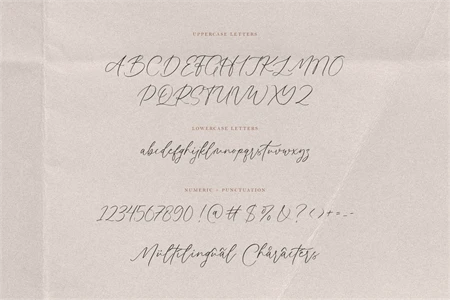 UPPERCASE LETTERS
ABCDEFGHIJKLMNO
PQRSTUVWXYZ
LOWERCASE LETTERS
abcdefghijklmnopqrstuvwxyz
NUMERIC + PUNCTUATION
1234567890!@#$%&?()+=-
Multilingual Characters